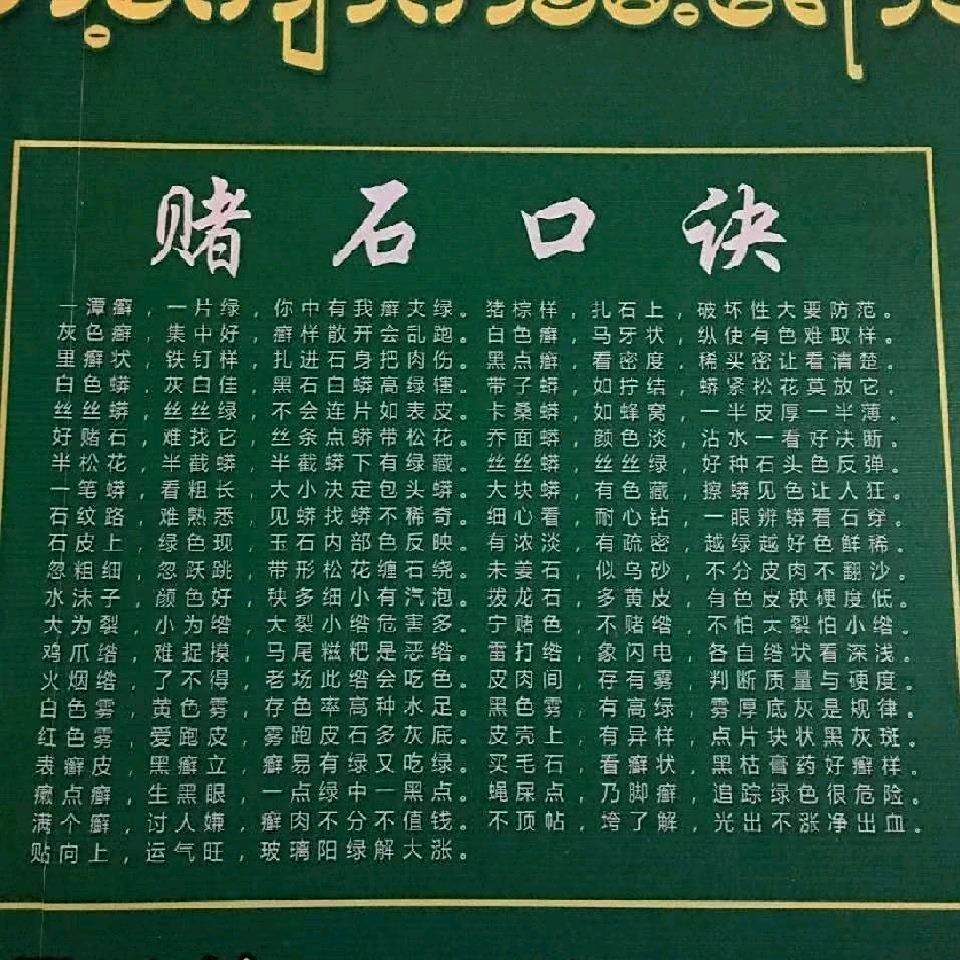 赌石口诀
一潭癣，一片绿，你中有我癣夹绿。猪棕样，扎石上，破坏性大要防范。
灰色癣，集中好，癣样散开会乱跑。白色癣，马牙状，纵使有色难取样。
里癣状，铁钉样，扎进石身把肉伤。黑点癣，看密度，稀买密让看清楚。
白色蟒，灰白佳，黑石白蟒高绿辖。带子蟒，如拧结，蟒紧松花莫放它，
丝丝蟒，丝丝绿，不会连片如表皮。卡桑蟒，如蜂窝，一半皮厚一半薄。
好赌石，难找它，丝条点蟒带松花。乔面蟒，颜色淡，沾水一看好决断。
半松花，半截蟒，半截蟒下有绿藏。丝丝蟒，丝丝绿，好种石头色反弹。
一笔蟒，看粗长，大小决定包头蟒。大块蟒，有色藏，擦蟒见色让人狂。
石纹路，难熟悉，见蟒找蟒不稀奇。细心看，耐心钻，一眼辨蟒看石穿。
石皮上，绿色现，玉石内部色反映。有浓淡，有疏密，越绿越好色鲜稀。
忽粗细，忽跃跳，带形松花缠石绕。未姜石，似乌砂，不分皮肉不翻沙。
水沫子，颜色好，秧多细小有汽泡。拨龙石，多黄皮，有色皮秧硬度低。
大为裂，小为绺，大裂小绺危害多。宁赌色，不赌绺，不怕大裂怕小绺。
鸡爪绺，难捉摸，马尾糍粑是恶绺。雷打绺，象闪电，各自绺状看深浅。
火烟绺，了不得，老场此绺会吃色。皮肉间，存有雾，判断质量与硬度。
白色雾，黄色雾，存色率高种水足。黑色雾，有高绿，雾厚底灰是规律。
红色雾，爱跑皮，雾跑皮石多灰底。皮壳上，有异样，点片块状黑灰斑。
表癣皮，黑癣立，癣易有绿又吃绿。买毛石，看癣状，黑枯膏药好癣样。
癞点癣，生黑眼，一点绿中一黑点。蝇屎点，乃脚癣，追踪绿色很危险。
满个癣，讨人嫌，癣肉不分不值钱。不顶帖，垮了解，光出不涨净出血。
贴向上，运气旺，玻璃阳绿解大涨。